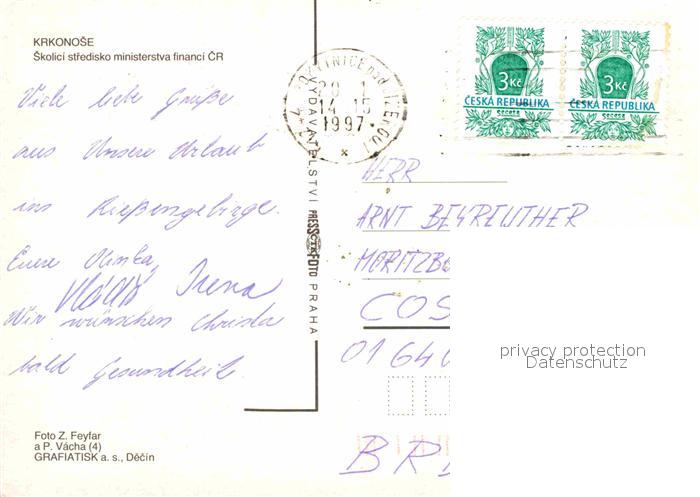 KRKONOŠE
Školicí středisko ministerstva financí ČR
Viele liebe Grüße
aus Unsere Urlaub
ins Rießengebirge.
Euere Olinka,
Vláďa Irena
Wir wünschen Christa
bald Gesundheit.
Foto Z. Feyfar
a P. Vácha (4)
GRAFIATISK a. s., Děčín
VYDAVATELSTVÍ PRESSFOTO PRAHA
nad JIZEROU
20 1
14 15
1997
3 Kč
ČESKÁ REPUBLIKA
secese
3 Kč
ČESKÁ REPUBLIKA
secese
HERR
ARNT BEYREUTHER
MORITZB
COS
01640
BRD
privacy protection
Datenschutz